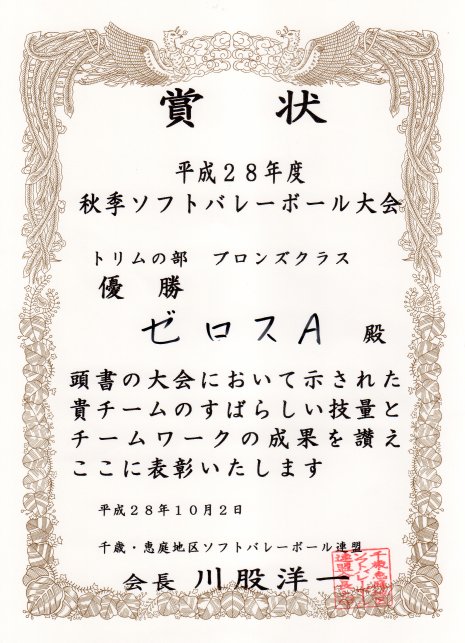 賞状
平成28年度
秋季ソフトバレーボール大会
トリムの部 ブロンズクラス
優勝
ゼロスA 殿
頭書の大会において示された
貴チームのすばらしい技量と
チームワークの成果を讃え
ここに表彰いたします
平成28年10月2日
千歳・恵庭地区ソフトバレーボール連盟
会長 川股洋一